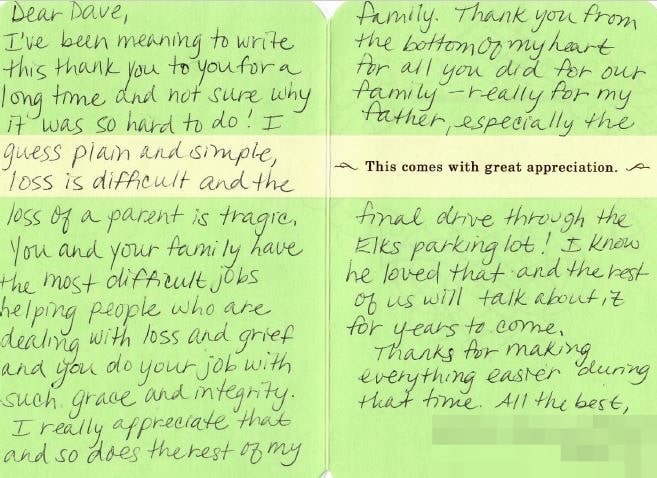 Dear Dave,
I've been meaning to write
this thank you to you for a
long time and not sure why
it was so hard to do! I
guess plain and simple,
loss is difficult and the
loss of a parent is tragic.
You and your family have
the most difficult jobs
helping people who are
dealing with loss and grief
and you do your job with
such grace and integrity.
I really appreciate that
and so does the rest of my
family. Thank you from
the bottom of my heart
for all you did for our
family - really for my
father, especially the
This comes with great appreciation.
final drive through the
Elks parking lot! I know
he loved that and the rest
of us will talk about it
for years to come.
Thanks for making
everything easier during
that time. All the best,